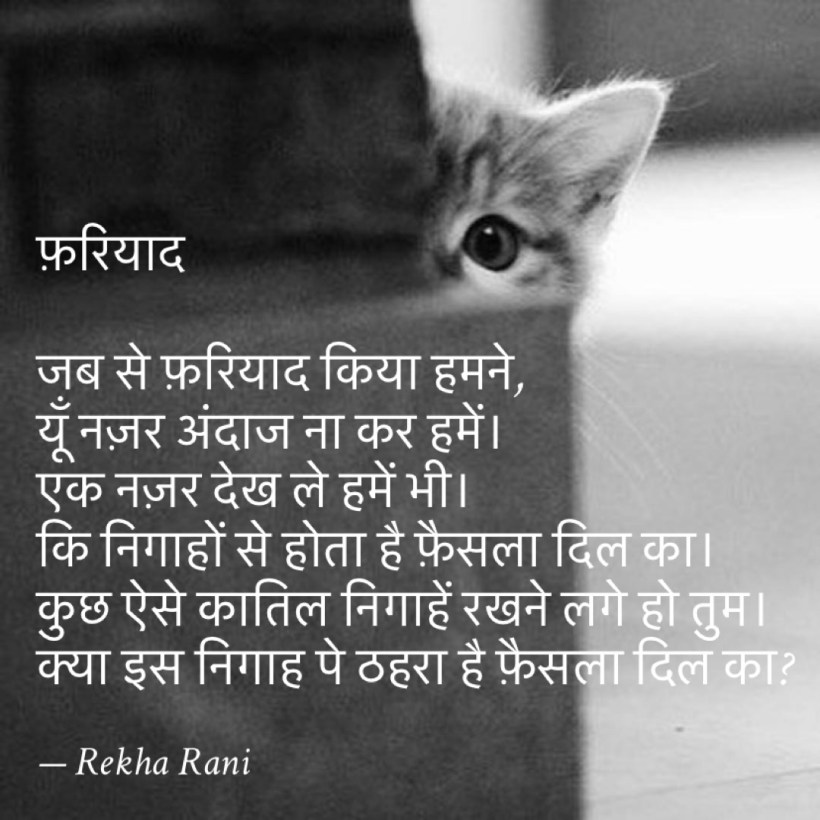 फ़रियाद
जब से फ़रियाद किया हमने,
यूँ नज़र अंदाज ना कर हमें।
एक नज़र देख ले हमें भी।
कि निगाहों से होता है फ़ैसला दिल का।
कुछ ऐसे कातिल निगाहें रखने लगे हो तुम।
क्या इस निगाह पे ठहरा है फ़ैसला दिल का?
— Rekha Rani